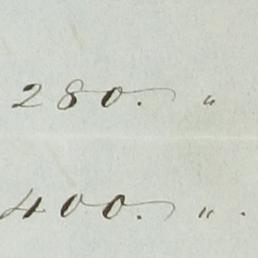 280. "
400. " .